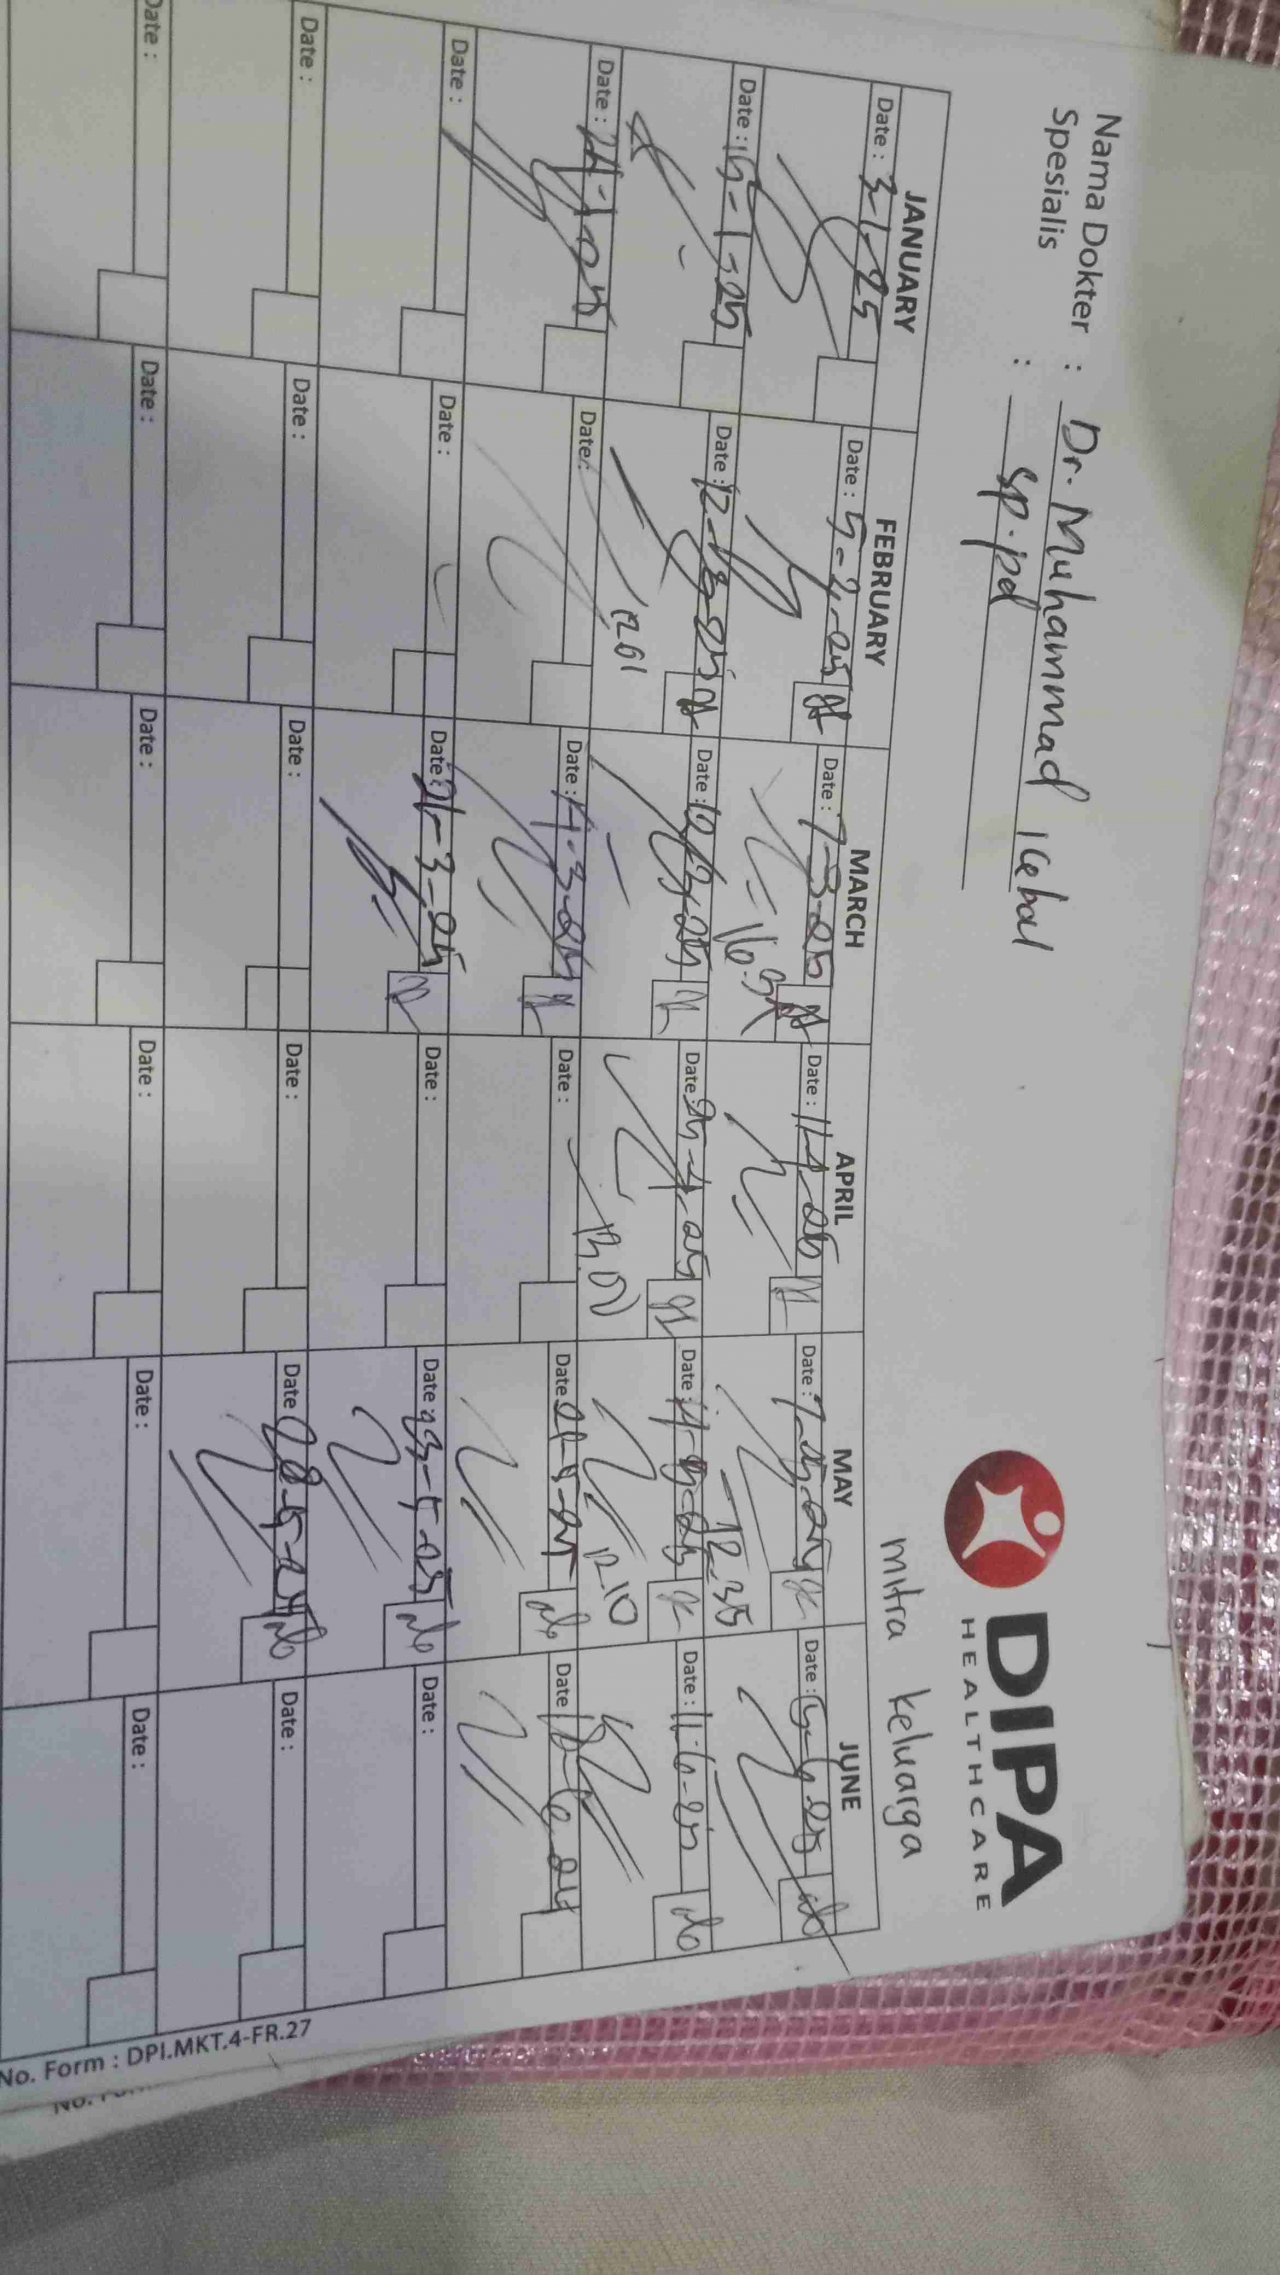 DIPA
HEALTHCARE
Nama Dokter : Dr. Muhammad Icebal
Spesialis : sp.pd
mitra keluarga
JANUARY FEBRUARY MARCH APRIL MAY JUNE
Date : 3-1-25 Date : 5-2-25 Date : 7-3-25 Date : 11-4-25 Date : 7-5-25 Date : 5-6-25
16.35 12.35
Date : 15-1-25 Date : 12-2-25 Date : 12-3-25 Date : 25-4-25 Date : 14-5-25 Date : 11-6-25
12.01 13.00 12.10
Date : 24-1-25 Date : Date : 14-3-25 Date : Date : 21-5-25 Date : 18-6-25
Date : Date : Date : 21-3-25 Date : Date : 23-5-25 Date :
Date : Date : Date : Date : Date : 28-5-25 Date :
Date : Date : Date : Date : Date : Date :
No. Form : DPI.MKT.4-FR.27